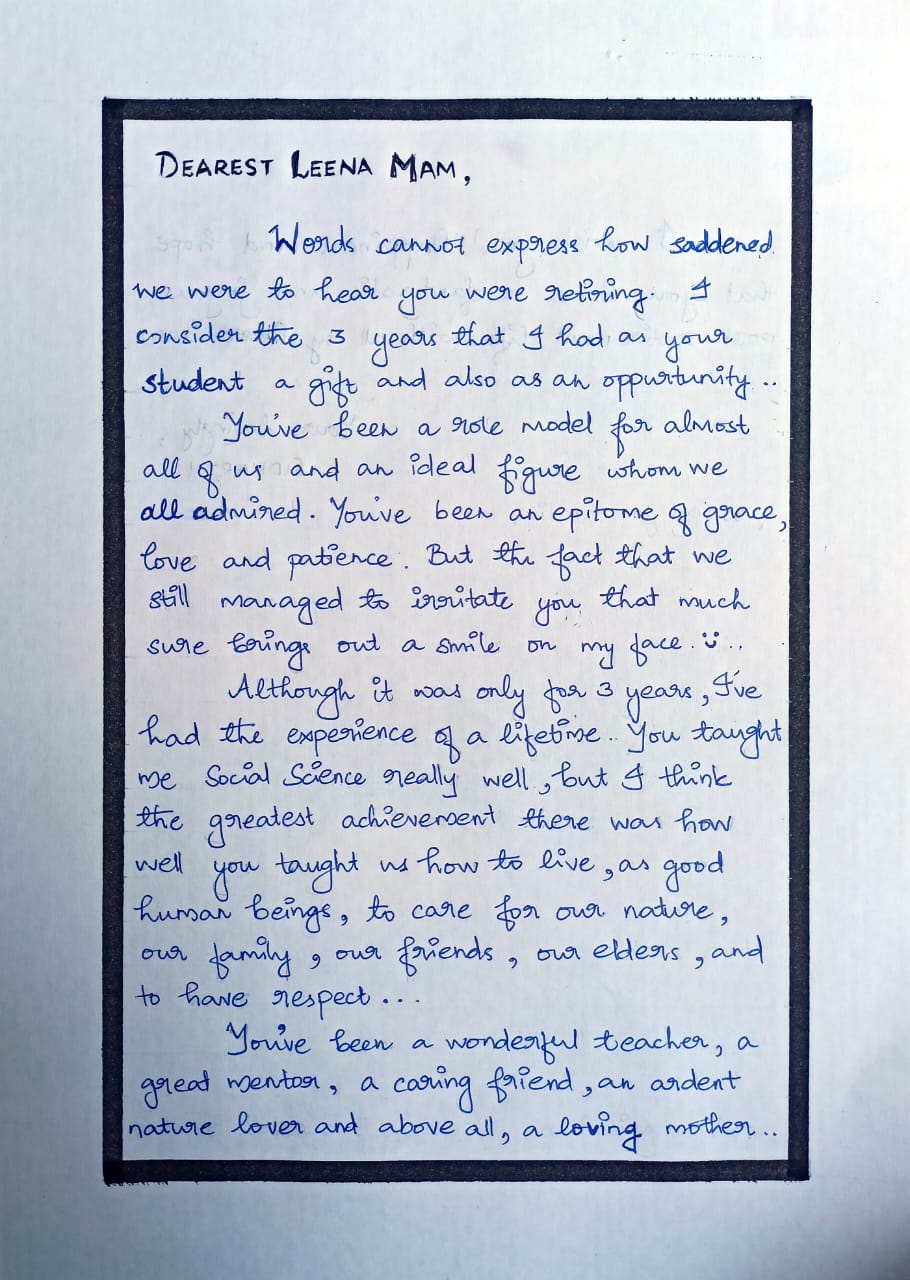 DEAREST LEENA MAM,
Words cannot express how saddened
we were to hear you were retiring. I
consider the 3 years that I had as your
student a gift and also as an oppurtunity..
You've been a role model for almost
all of us and an ideal figure whom we
all admired. You've been an epitome of grace,
love and patience. But the fact that we
still managed to irritate you that much
sure brings out a smile on my face. :)..
Although it was only for 3 years, I've
had the experience of a lifetime.. You taught
me Social Science really well, but I think
the greatest achievement there was how
well you taught us how to live, as good
human beings, to care for our nature,
our family, our friends, our elders, and
to have respect...
You've been a wonderful teacher, a
great mentor, a caring friend, an ardent
nature lover and above all, a loving mother..